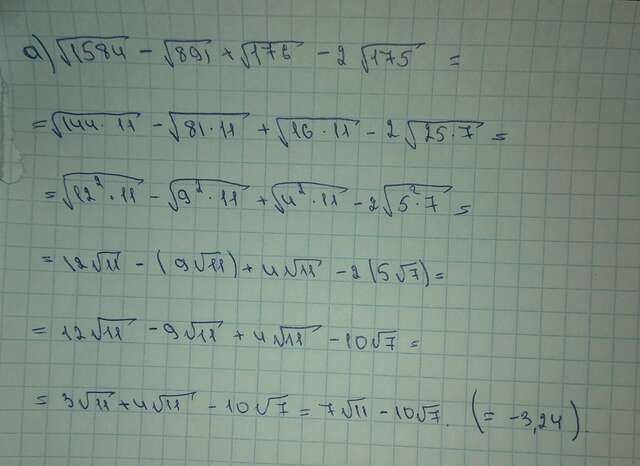 a) √1584 - √891 + √176 - 2√175 =
= √144·11 - √81·11 + √16·11 - 2√25·7 =
= √12²·11 - √9²·11 + √4²·11 - 2√5²·7 =
= 12√11 - (9√11) + 4√11 - 2(5√7) =
= 12√11 - 9√11 + 4√11 - 10√7 =
= 3√11 + 4√11 - 10√7 = 7√11 - 10√7. (= -3,24).